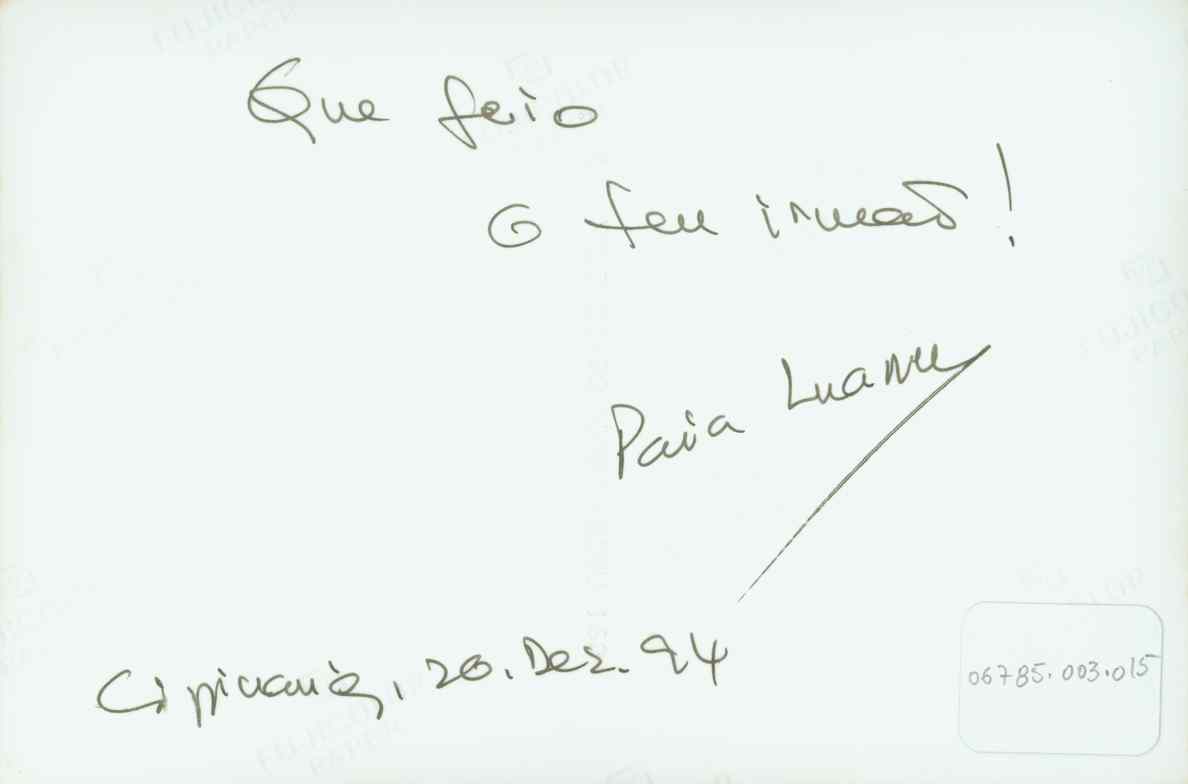 Que feio
o teu irmaõ!
Paia Luanne
Cipinang, 20. Dez. 94
06785.003.015
FUJICOLOR
PAPER